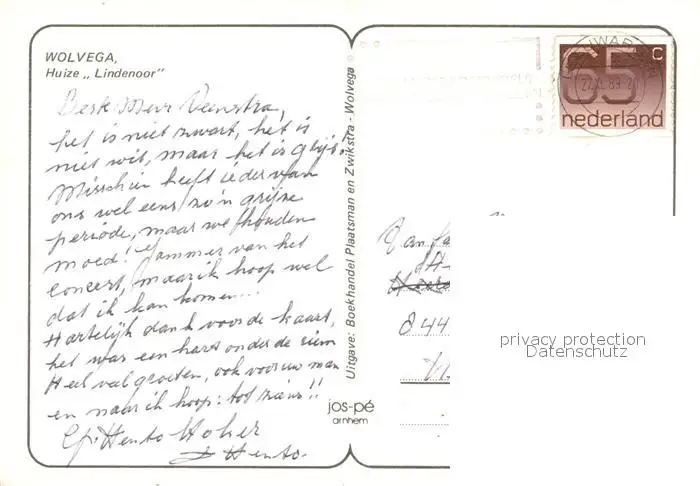 WOLVEGA,
Huize „ Lindenoor"
Beste Mevr Veenstra,
het is niet zwart, het is
niet wit, maar het is grijs.
Misschien heeft ieder van
ons wel eens zo'n grijze
periode, maar we houden
moed! Jammer van het
concert, maar ik hoop wel
dat ik kan komen...
Hartelijk dank voor de kaart,
het was een hart onder de riem
Heel veel groeten, ook voor uw man
en naar ik hoop: tot ziens!!
Uitgave: Boekhandel Plaatsman en Zwikstra - Wolvega
jos-pé
arnhem
65 c
nederland
844
privacy protection
Datenschutz